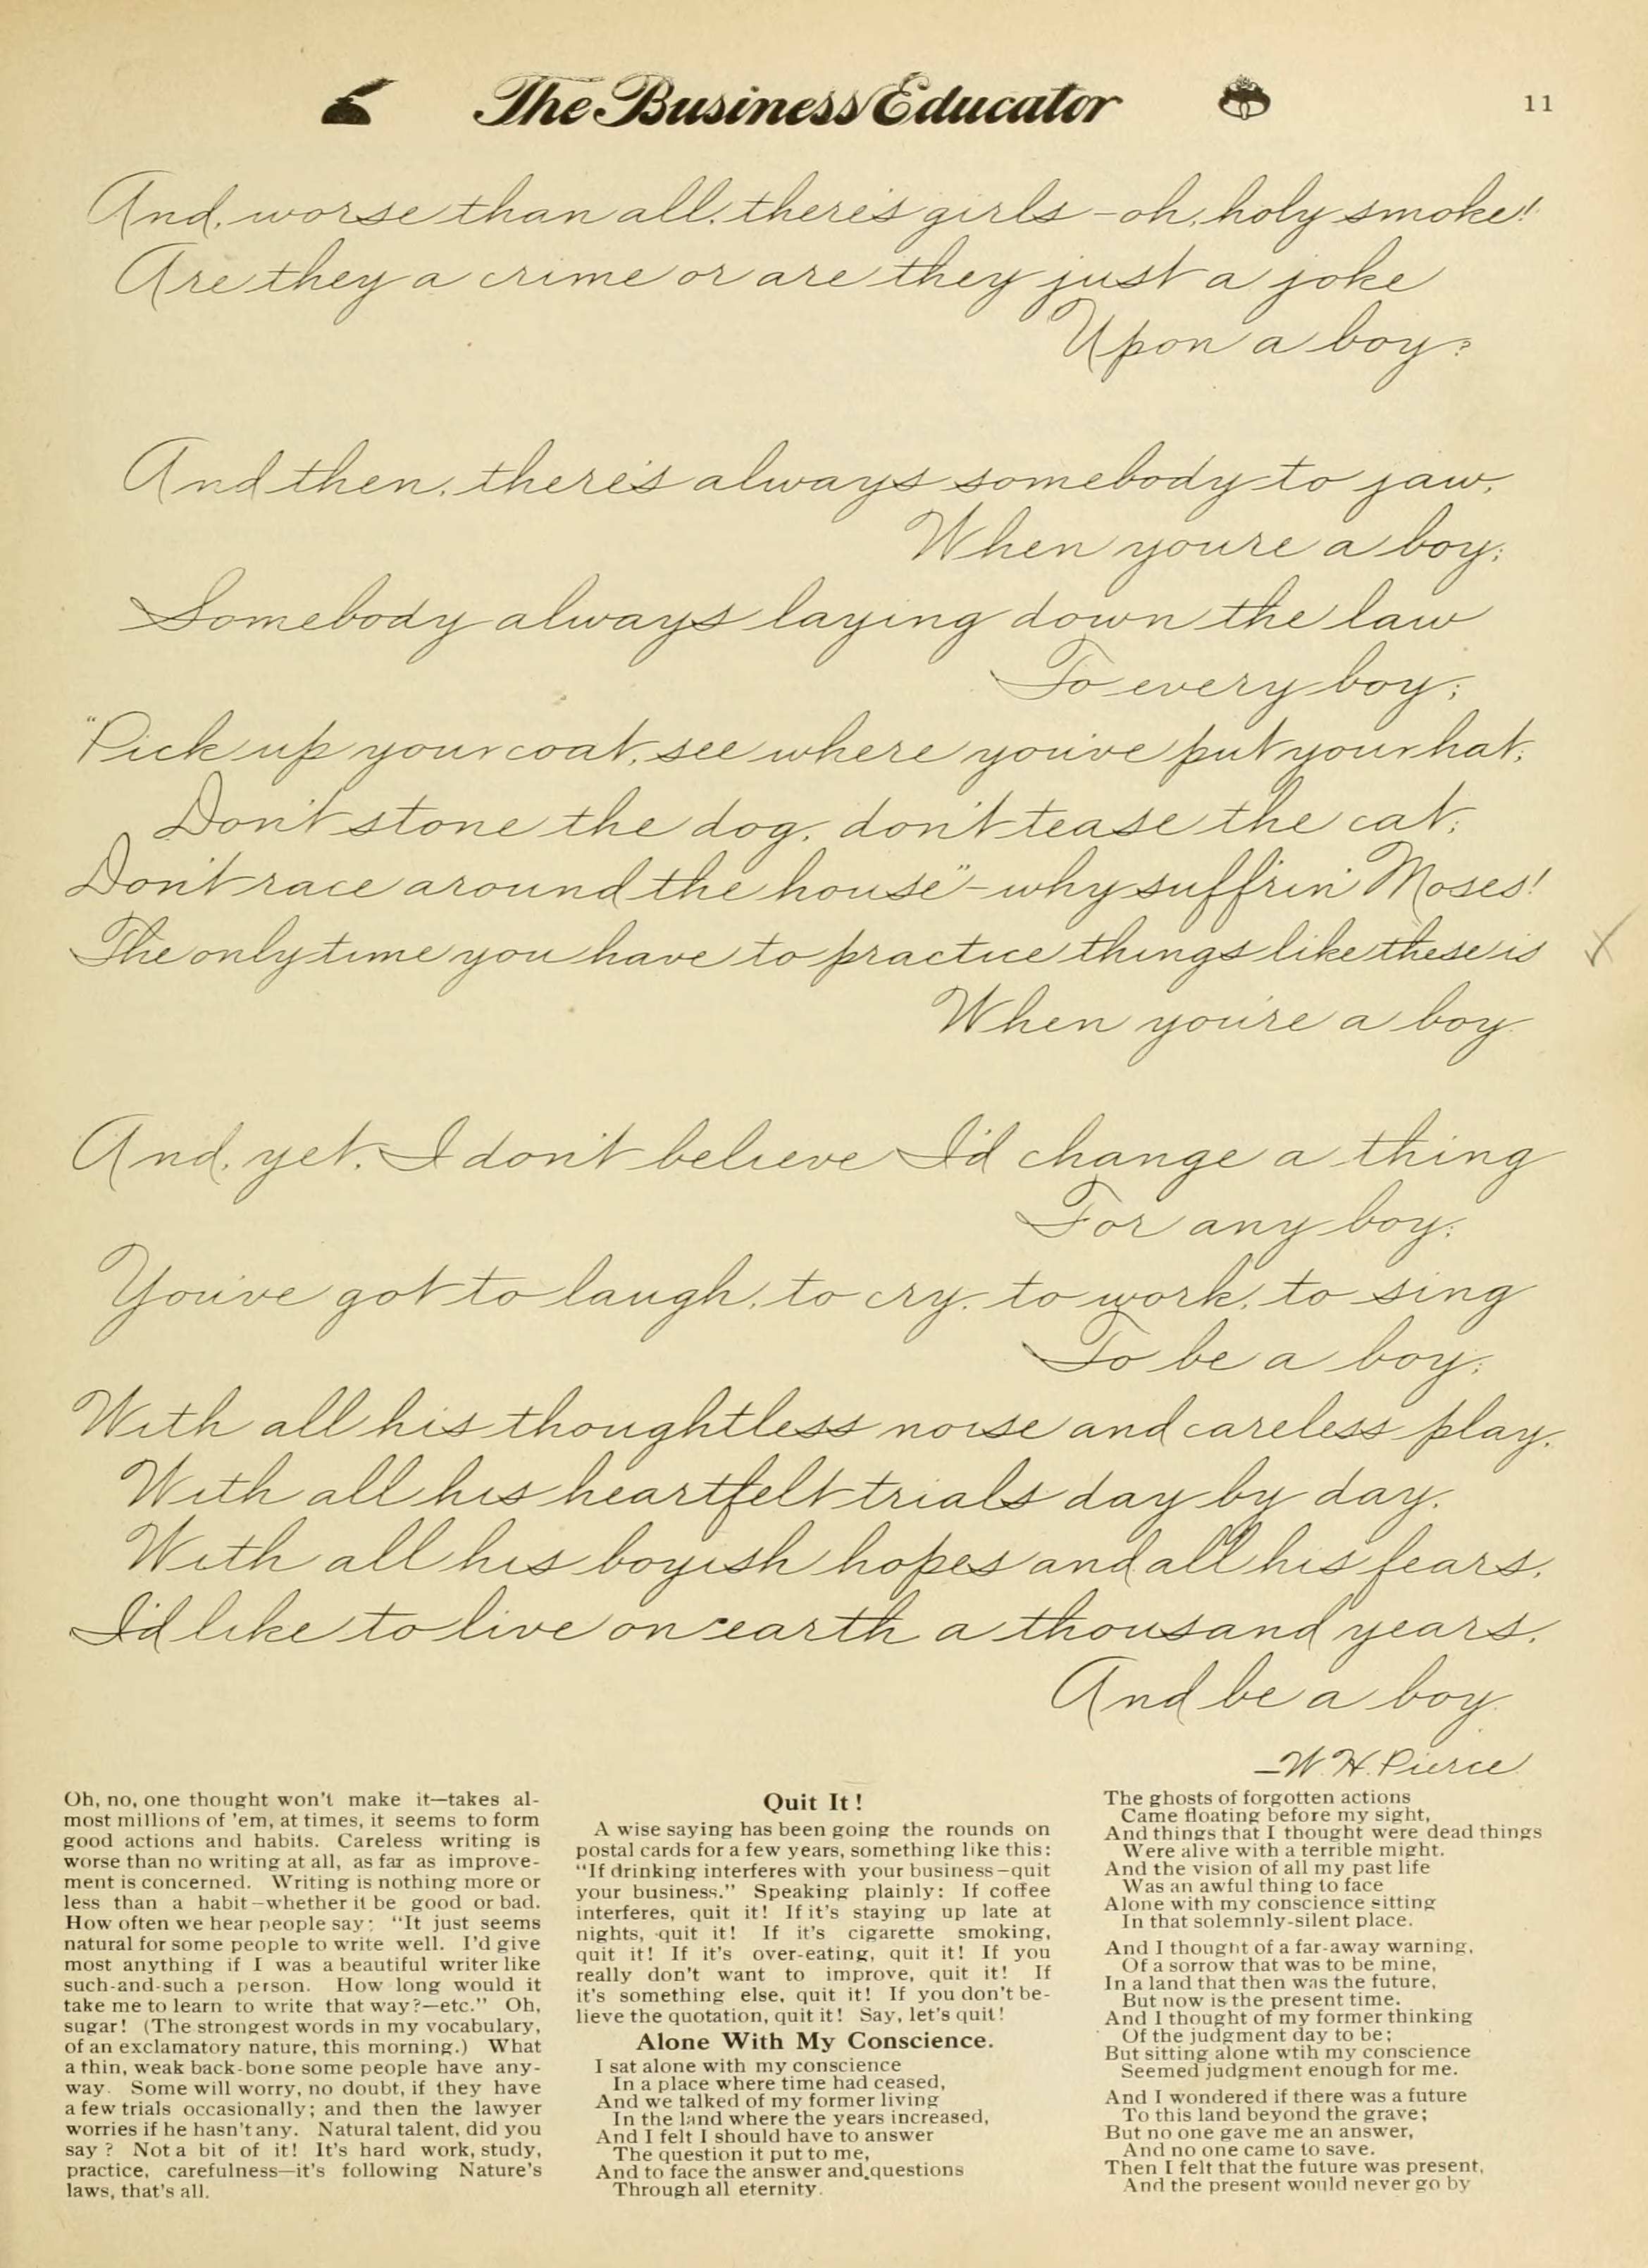 The Business Educator
11
And, worse than all, there's girls - oh, holy smoke!
Are they a crime or are they just a joke
Upon a boy?
And then, there's always somebody to jaw,
When you're a boy;
Somebody always laying down the law
To every boy;
"Pick up your coat, see where you've put your hat;
Don't stone the dog, don't tease the cat;
Don't race around the house" - why suffrin' Moses!
The only time you have to practice things like these is
When you're a boy.
And, yet, I don't believe I'd change a thing
For any boy;
You've got to laugh, to cry, to work, to sing
To be a boy;
With all his thoughtless noise and careless play,
With all his heartfelt trials day by day,
With all his boyish hopes and all his fears,
I'd like to live on earth a thousand years,
And be a boy.
—W. H. Pierce
Oh, no, one thought won't make it—takes al-
most millions of 'em, at times, it seems to form
good actions and habits. Careless writing is
worse than no writing at all, as far as improve-
ment is concerned. Writing is nothing more or
less than a habit—whether it be good or bad.
How often we hear people say: "It just seems
natural for some people to write well. I'd give
most anything if I was a beautiful writer like
such-and-such a person. How long would it
take me to learn to write that way?—etc." Oh,
sugar! (The strongest words in my vocabulary,
of an exclamatory nature, this morning.) What
a thin, weak back-bone some people have any-
way. Some will worry, no doubt, if they have
a few trials occasionally; and then the lawyer
worries if he hasn't any. Natural talent, did you
say? Not a bit of it! It's hard work, study,
practice, carefulness—it's following Nature's
laws, that's all.
Quit It!
A wise saying has been going the rounds on
postal cards for a few years, something like this:
"If drinking interferes with your business—quit
your business." Speaking plainly: If coffee
interferes, quit it! If it's staying up late at
nights, quit it! If it's cigarette smoking,
quit it! If it's over-eating, quit it! If you
really don't want to improve, quit it! If
it's something else, quit it! If you don't be-
lieve the quotation, quit it! Say, let's quit!
Alone With My Conscience.
I sat alone with my conscience
In a place where time had ceased,
And we talked of my former living
In the land where the years increased,
And I felt I should have to answer
The question it put to me,
And to face the answer and questions
Through all eternity.
The ghosts of forgotten actions
Came floating before my sight,
And things that I thought were dead things
Were alive with a terrible might.
And the vision of all my past life
Was an awful thing to face
Alone with my conscience sitting
In that solemnly-silent place.
And I thought of a far-away warning,
Of a sorrow that was to be mine,
In a land that then was the future,
But now is the present time.
And I thought of my former thinking
Of the judgment day to be;
But sitting alone wtih my conscience
Seemed judgment enough for me.
And I wondered if there was a future
To this land beyond the grave;
But no one gave me an answer,
And no one came to save.
Then I felt that the future was present,
And the present would never go by